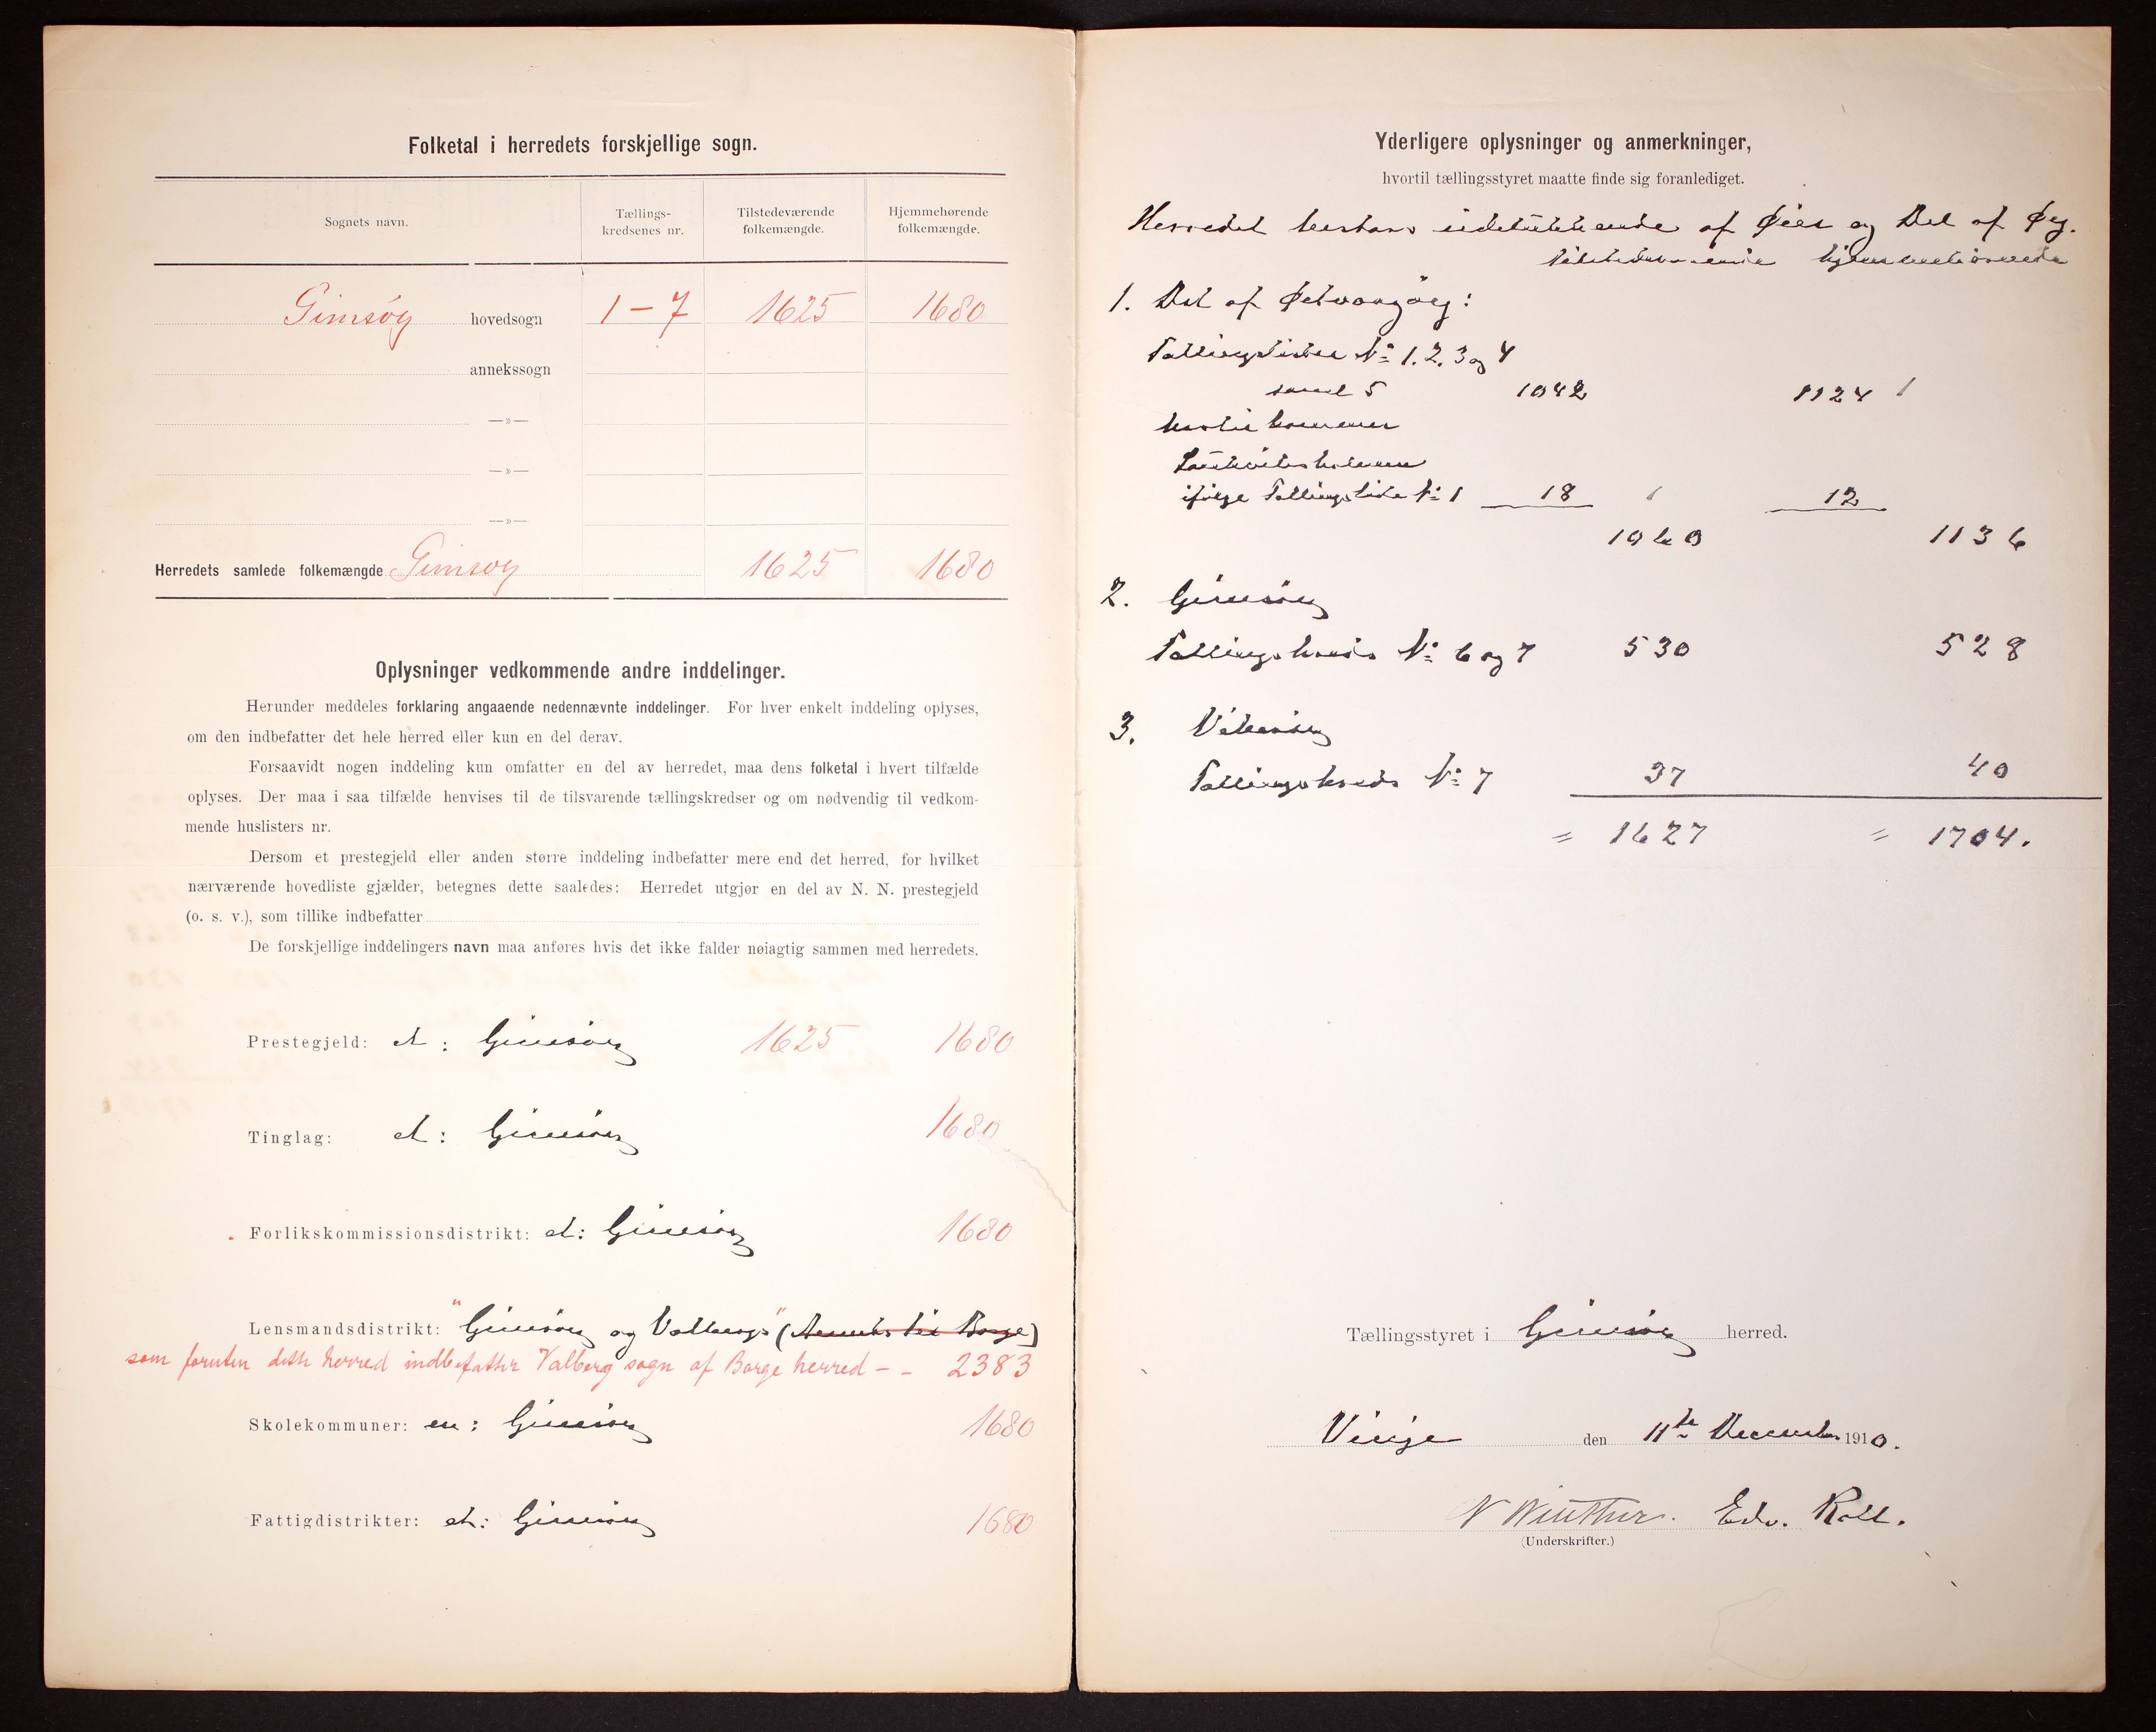 Folketal i herredets forskjellige sogn.
Sognets navn.
Tællings-
kredsenes nr.
Tilstedeværende
folkemængde.
Hjemmehørende
folkemængde.
Gimsøy hovedsogn 1 – 7 1625 1680
annekssogn
—»—
—»—
—»—
Herredets samlede folkemængde Gimsøy 1625 1680
Oplysninger vedkommende andre inddelinger.
Herunder meddeles forklaring angaaende nedennævnte inddelinger. For hver enkelt inddeling oplyses,
om den indbefatter det hele herred eller kun en del derav.
Forsaavidt nogen inddeling kun omfatter en del av herredet, maa dens folketal i hvert tilfælde
oplyses. Der maa i saa tilfælde henvises til de tilsvarende tællingskredser og om nødvendig til vedkom-
mende huslisters nr.
Dersom et prestegjeld eller anden større inddeling indbefatter mere end det herred, for hvilket
nærværende hovedliste gjælder, betegnes dette saaledes: Herredet utgjør en del av N. N. prestegjeld
(o. s. v.), som tillike indbefatter
De forskjellige inddelingers navn maa anføres hvis det ikke falder nøiagtig sammen med herredets.
Prestegjeld: et: Gimsøy 1625 1680
Tinglag: et: Gimsøy 1680
Forlikskommissionsdistrikt: et: Gimsøy 1680
Lensmandsdistrikt: "Gimsøy og Valberg" (Anneks til Borge)
som foruten dette herred indbefatter Valberg sogn af Borge herred – – 2383
Skolekommuner: en: Gimsøy 1680
Fattigdistrikter: et: Gimsøy 1680
Yderligere oplysninger og anmerkninger,
hvortil tællingsstyret maatte finde sig foranlediget.
Herredet bestaar udelukkende af Øier og Del af Øy.
tilstedeværende hjemmehørende
1. Del af Østvaagøy:
Tællingslister № 1. 2. 3 og 4
samt 5 1042 1124
hertil kommer
ifølge Tællingsliste № 1 18 12
1060 1136
2. Gimsøy
Tællingskreds № 6 og 7 530 528
3.
Tællingskreds № 7 37 40
= 1627 = 1704.
Tællingsstyret i Gimsøy herred.
Vinje den 11te December 1910.
N Winther. Edv. Roll.
(Underskrifter.)